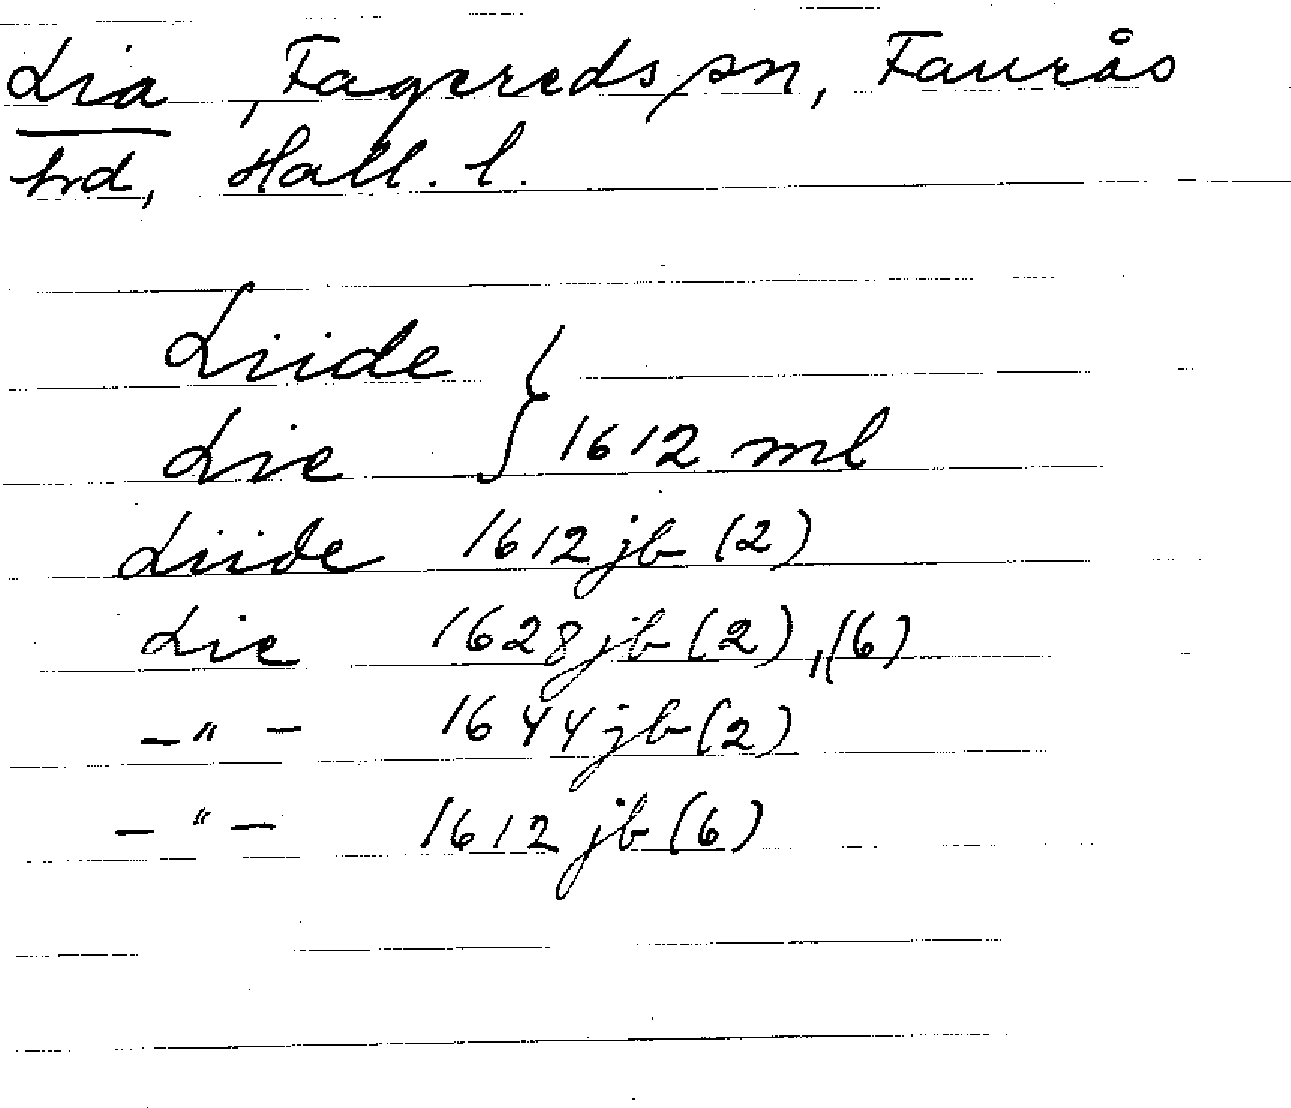 Lia, Fagereds sn, Faurås
hd, Hall. l.
Liide
Lie } 1612 ml
Liide 1612 jb (2)
Lie 1628 jb (2), (6)
-"- 1644 jb (2)
-"- 1612 jb (6)